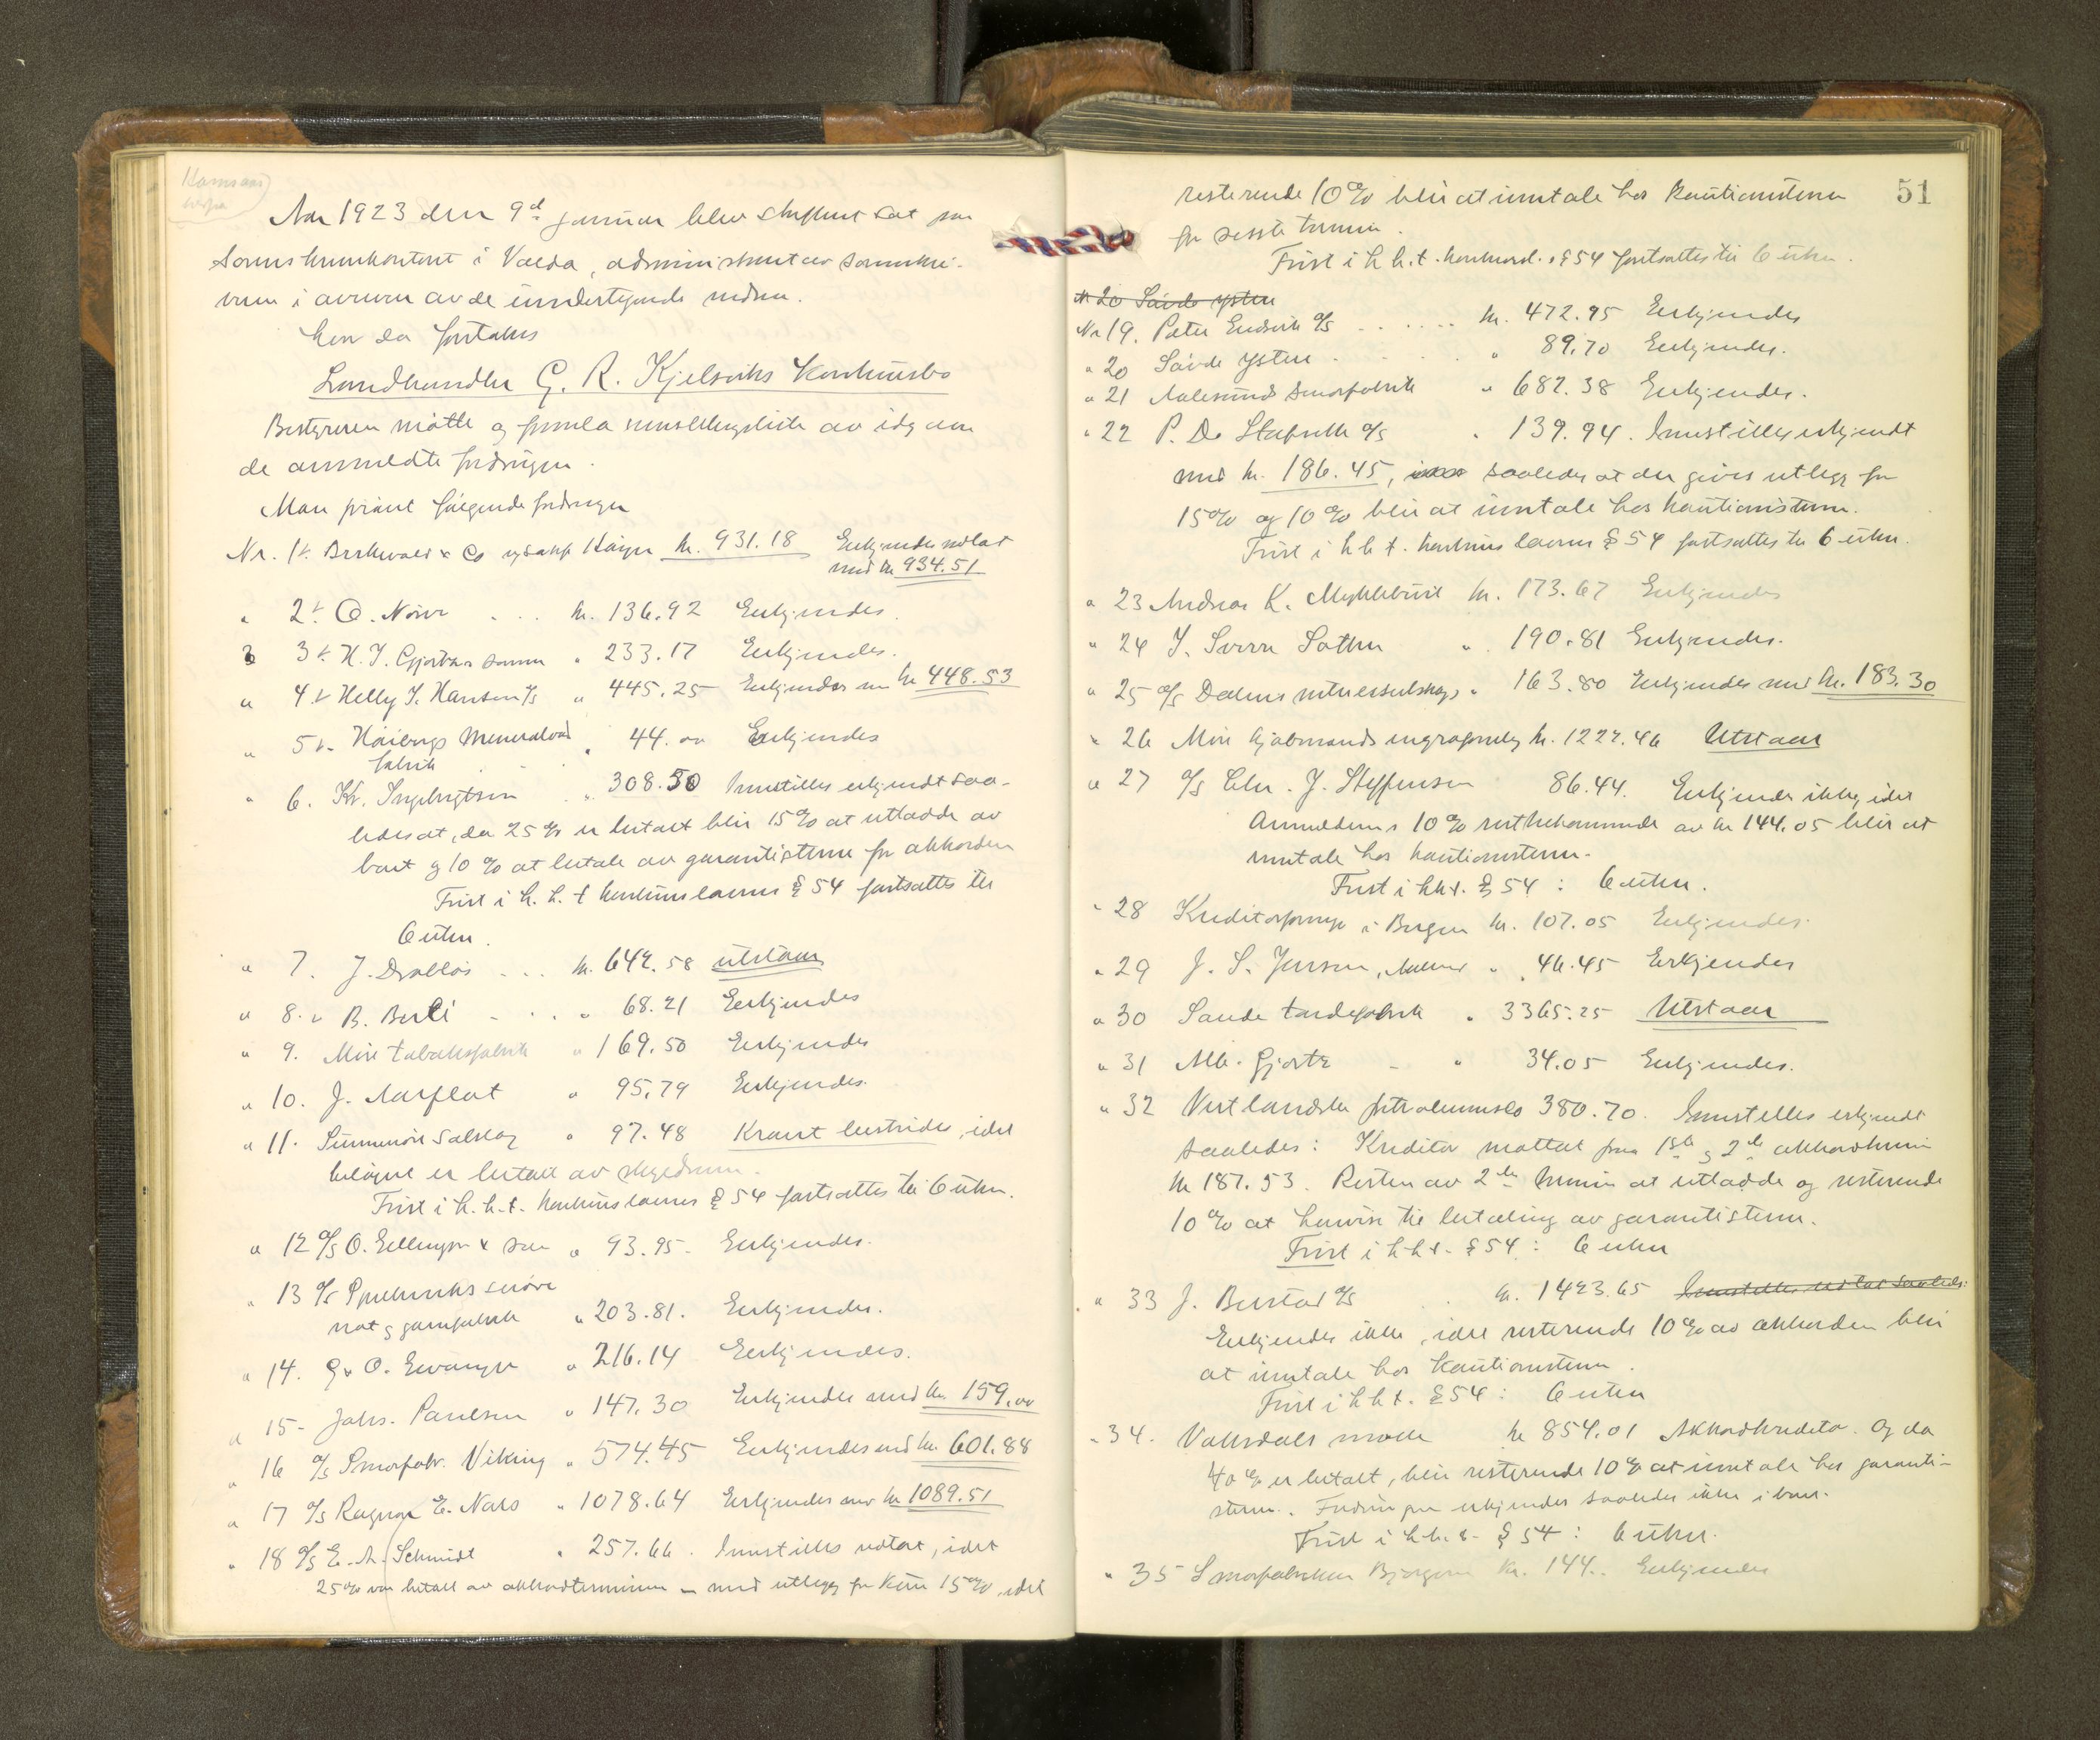 Aar 1923 den 9d januar blev skifteret sat paa
Sorenskriverkontoret i Volda, administrert av sorenskri-
veren i nærvær av de undertegnede vidner.
Hvor da foretokes
Landhandler G. R. Kjelsviks konkursbo
Bestyreren møtte og fremla innstillingsliste av idag over
de anmeldte fordringer.
Man prøvet følgende fordringer
Nr. 1. Berkvald & Co kr. 931.18 Erkjendes
med kr 934.51
" 2. O. Nörve ... kr. 136.92 Erkjendes.
3 3. H. J. Gjørtz's sønner " 233.17 Erkjendes.
" 4. Helly J. Hansen A/s " 445.25 Erkjendes m kr 448.53
" 5. Høibergs Mineralvand
fabrik " 44.00 Erkjendes
" 6. Kr. Ingebrigtsen " 308.50 Innstilles erkjendt saa-
ledes at, da 25% er betalt blir 15% at utlodde av
boet og 10% at betale av garantisterne for akkorden
Frist i h. h. t konkurslovens § 54 fortsattes til
6 uker.
" 7. J. Drabløs ... kr. 642.58 utstaar
" 8. B. Berli - . . . " 68.21 Erkjendes
" 9. Møre tobaksfabrik " 169.50 Erkjendes
" 10. J. Aarflot " 95.79 Erkjendes.
" 11. Sunnmøre salslag " 97.48 Kravet bestrides, idet
beløpet er betalt av skyldneren.
Frist i h. h. t. konkurslovens § 54 fortsattes til 6 uker.
" 12 A/s O. Ellingsen & søn " 93.95 Erkjendes.
" 13 A/s Spjelkaviks snøre
not & garnfabrik " 203.81. Erkjendes.
" 14. G & O. Evanger " 216.14 Erkjendes.
" 15- Johs. Paulsen " 147.30 Erkjendes med kr. 159.00
" 16 A/s Smørfabr. Viking " 574.45 Erkjendes med kr. 601.88
" 17 A/s Ragnar E. Nars " 1078.64 Erkjendes med kr 1089.51
" 18 A/s E. A. Schmidt " 257.66. Innstilles utlat, idet
25% var betalt av akkordterminen – med utlegg for kun 15%, idet
51
resterende 10% blir at inntale hos kautionisterne
for sisste termin.
Frist i h. h. t. konkursl. § 54 fortsattes til 6 uker.
Nr 20 Søvde ysteri
Nr 19. Peter Endsvik A/s ...... kr. 472.95 Erkjendes
" 20 Søvde ysteri . . . . " 89.70 Erkjendes.
" 21 Aalesunds smørfabrik " 682.38 Erkjendes.
" 22 P. Do Stafseth A/s " 139.94. Innstilles erkjendt
med kr. 186.45, saaledes at der gives utlegg for
15% og 10% blir at inntale hos kautionisterne.
Frist i h h t. konkurslovens § 54 fortsattes til 6 uker.
" 23 Andreas K. Myklebust kr. 173.67 Erkjendes
" 24 J. Sverre Sæther " 190.81 Erkjendes.
" 25 A/s Dalens " 163.80 Erkjendes med kr. 183.30
" 26 Møre kjøbmands engrosforretn. kr. 1227.46 Utstaar
" 27 A/s Chr. J. Steffensen 86.44. Erkjendes ikke, idet
Anmelderens 10% resttilkommende av kr 144.05 blir at
inntale hos kautionisterne.
Frist i hht. § 54 : 6 uker.
" 28 Kreditorforening i Bergen kr. 107.05 Erkjendes.
" 29 J. S. Jensen, " 46.45 Erkjendes
" 30 Sande tøndefabrik " 3365.25 Utstaar
" 31 Alb. Gjørtz - " 34.05 Erkjendes.
" 32 Vestlandske petroleumsco 380.70. Innstilles erkjendt
saaledes: Kreditor mottat fra 1ste og 2de akkordtermin
kr 187.53. Resten av 2den termin at utlodde og resterende
10% at henvise til betaling av garantisterne.
Frist i hht. § 54 : 6 uker
" 33 J. Bustad A/s kr. 1423.65 Innstilles utlat saaledes:
Erkjendes ikke, idet resterende 10% av akkorden blir
at inntale hos kautionisterne.
Frist i h h t. § 54 : 6 uker
" 34. Valksdals mølle kr 854.01 Akkordkreditor. Og da
40% er betalt, blir resterende 10% at inntale hos garanti-
sterne. Fordringen erkjendes saaledes ikke i boet.
Frist i h. h. t. § 54 : 6 uker.
" 35 Smørfabrikken Bjørgvin kr. 144.. Erkjendes